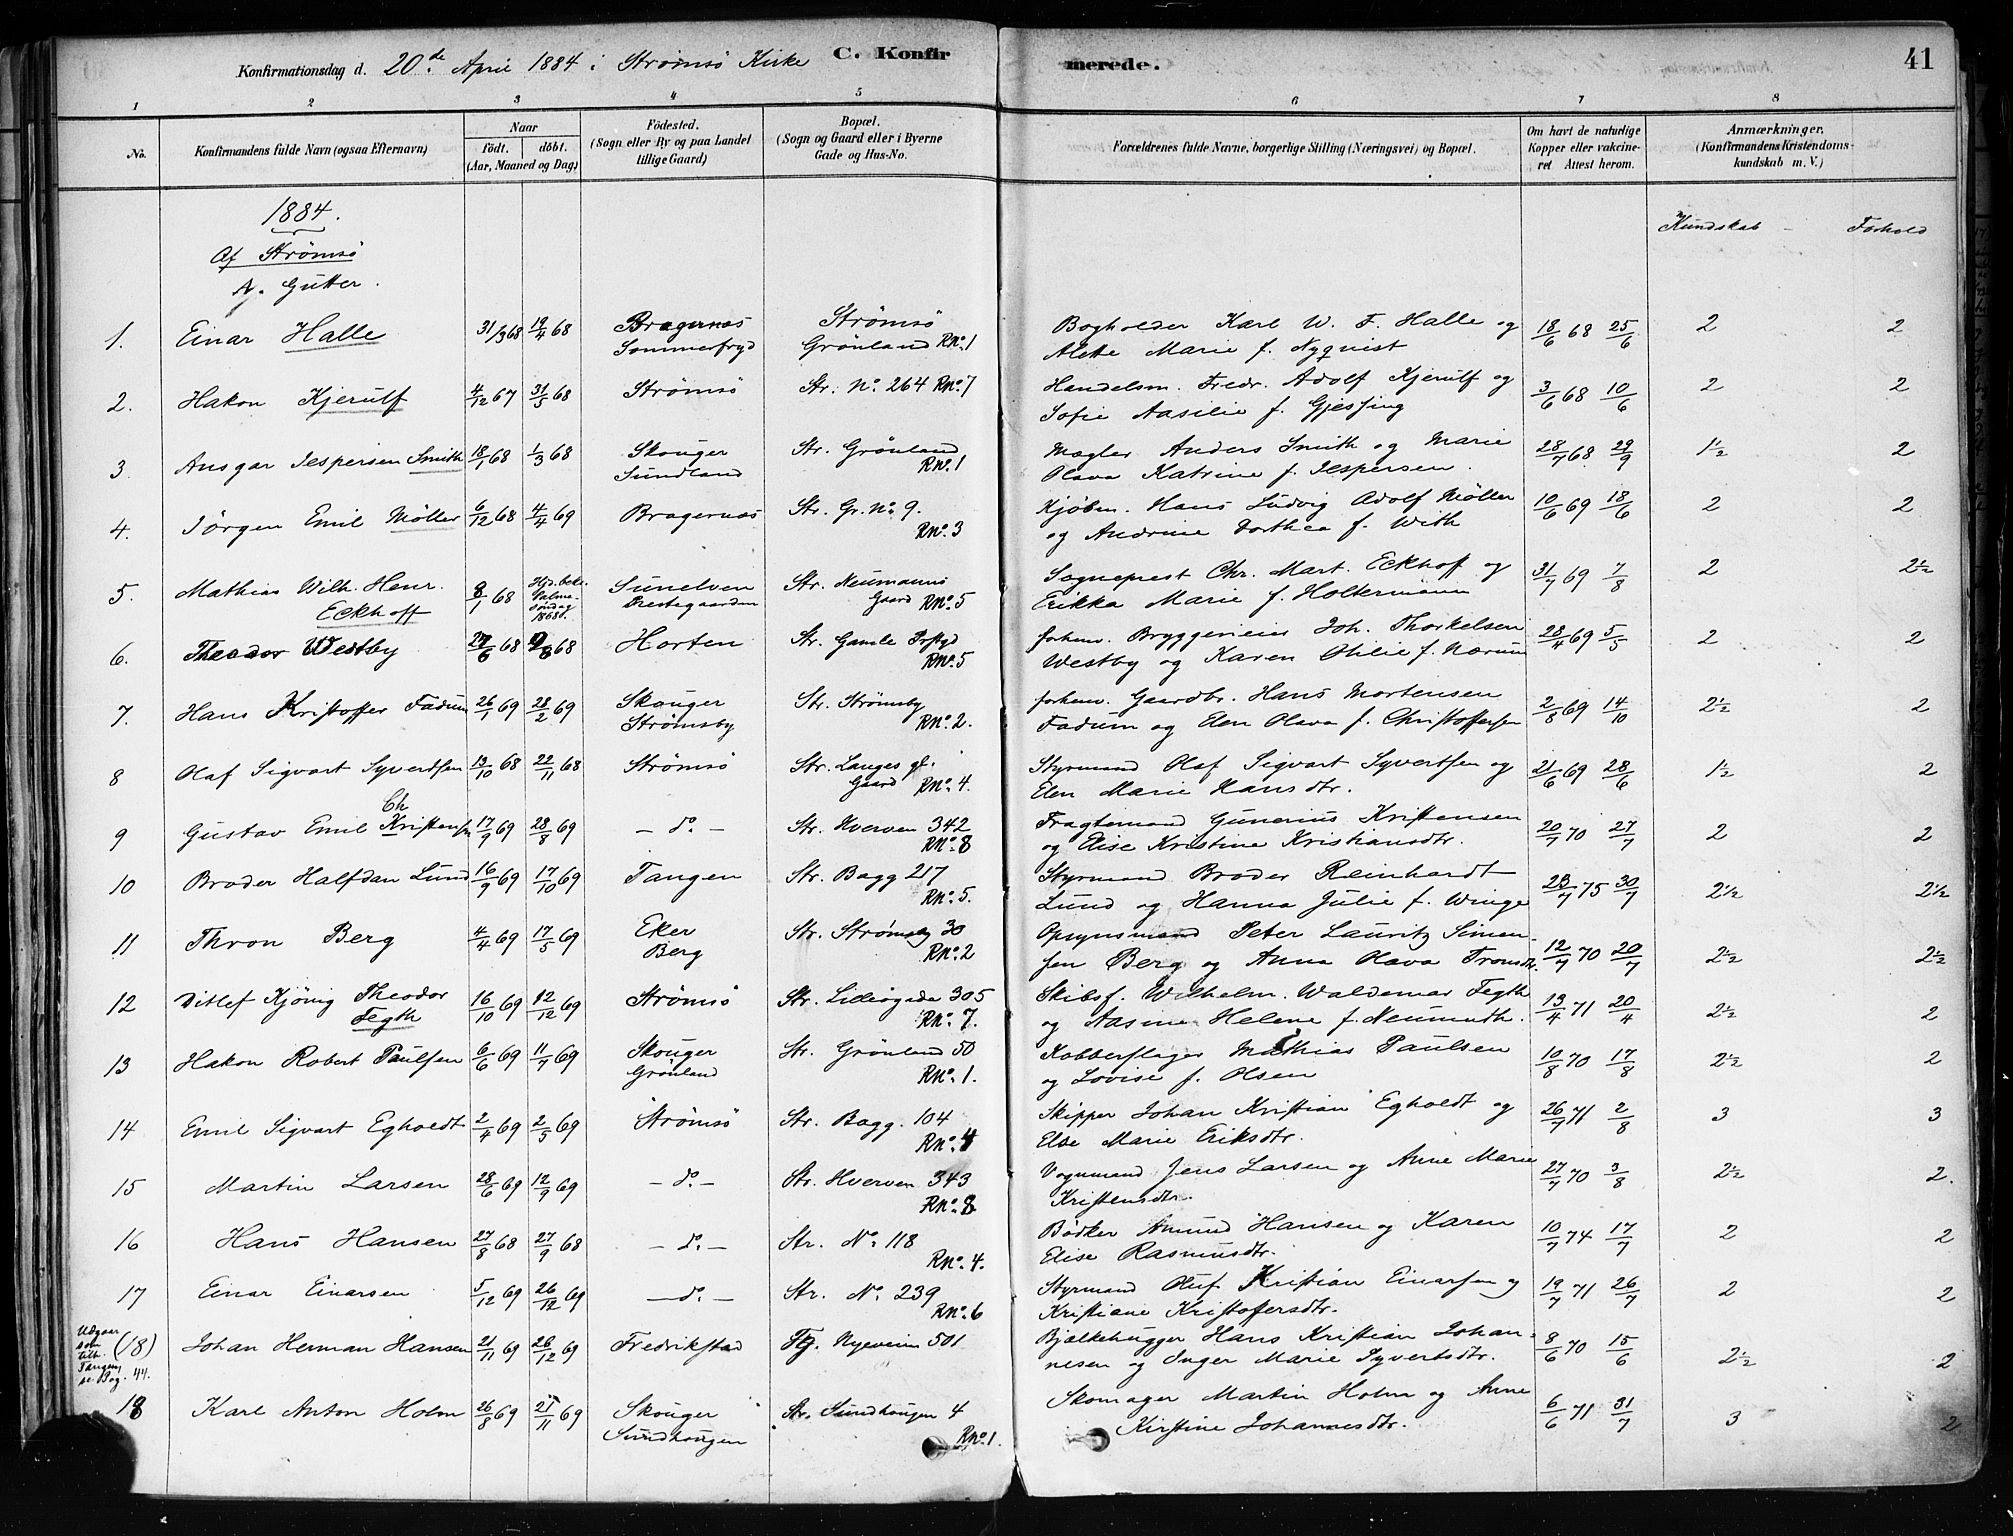 Konfirmationsdag d. 20de April 1884 i Strømsø Kirke C. Konfir merede. 41
1 2 3 4 5 6 7 8
No.
Konfirmandens fulde Navn (ogsaa Efternavn)
Naar
født. døbt.
(Aar, Maaned og Dag)
Fødested.
(Sogn eller By og paa Landet
tillige Gaard)
Bopæl.
(Sogn og Gaard eller i Byerne
Gade og Hus-No.
Forældrenes fulde Navne, borgerlige Stilling (Næringsvei) og Bopæl.
Om havt de naturlige
Kopper eller vakcine-
ret Attest herom.
Anmærkninger.
(Konfirmandens Kristendoms-
kundskab m. V.)
1884.
Af Strømsø
A. Gutter.
Kundskab - Forhold
1. Einar Halle 31/3 68 19/4 68 Bragernæs Strømsø Bogholder Karl W. F. Halle og 18/6 68 25/6 2 2
Sommerfryd Grønland RNo. 1 Alette Marie f. Nyqvist
2. Hakon Kjerulf 4/12 67 31/5 68 Strømsø Str. No. 264 RNo. 7 Handelsm. Fredr. Adolf Kjerulf og 3/6 68 10/6 2 2
Sofie Aasilie f. Gjessing
3. Ansgar Jespersen Smith 18/1 68 1/3 68 Skouger Str. Grønland Mægler Anders Smith og Marie 28/7 68 29/9 1½ 2
Sundland RNo. 1 Olava Katrine f. Jespersen.
4. Jørgen Emil Møller 6/12 68 4/4 69 Bragernæs Str. Gr. No. 9. Kjøbm. Hans Ludvig Adolf Møller 10/6 69 18/6 2 2
RNo. 3 og Andrine Dorthea f. With
5. Mathias Wilh. Henr. 8/1 68 Hjd. bekr. Sunelven Str. Neumanns Sogneprest Chr. Mart. Eckhoff og 31/7 69 7/8 2 2½
Eckhoff Palme- søndag 1868. Prestegaarden Gaard RNo. 5 Erikka Marie f. Holtermann
6. Theodor Westby 68 68 Horten Str. Gamle RNo. 5 forhenv. Bryggerieier Joh. Thorkelsen 28/4 69 5/5 2 2
Westby og Karen Otilie f. Nærum
7. Hans Kristoffer Fadum 26/1 69 28/2 69 Skouger Str. Strømsby forhenv. Gaardbr. Hans Mortensen 2/8 69 14/10 2½ 2
Strømsby RNo. 2. Fadum og Elen Olava f. Christoffersen
8 Olaf Sigvart Syvertsen 13/10 68 22/11 68 Strømsø Str. Langes gl. Styrmand Olaf Sigvart Syvertsen og 21/6 69 28/6 1½ 2
Gaard RNo. 4. Elen Marie Hansdtr.
Ch
9 Gustav Emil Kristensen 17/9 69 28/8 69 - do. - Str. Hverven 342 Fragtemand Gunerius Kristensen 20/7 70 27/7 2 2
RNo. 8 og Elise Kristine Kristiansdtr.
10 Broder Halfdan Lund 16/9 69 17/10 69 Tangen Str. Bagg 217 Styrmand Broder Reinhardt 23/7 75 30/7 2½ 2½
RNo. 5. Lund og Hanna Julie f. Winge
11 Thron Berg 4/4 69 17/5 69 Eker Str. Strømsby 30 Opsynsmand Peter Lauritz Simen- 12/7 70 20/7 2½ 2½
Berg RNo. 2 sen Berg og Anna Olava Tronsdtr.
12 Ditlef Kjønig Theodor 16/10 69 12/12 69 Strømsø Str. Lilleøgade 305 Skibsf. Wilhelm. Waldemar Fegth 13/4 71 20/4 2½ 2
Fegth RNo. 7. og Aasine Helene f. Neumuth.
13 Hakon Robert Paulsen 6/6 69 11/7 69 Skouger Str. Grønland 50 Kobberslager Mathias Paulsen 10/8 70 17/8 2½ 2
Grønland RNo. 1. og Lovise f. Olsen
14 Emil Sigvart Egholdt 2/4 69 2/5 69 Strømsø Str. Bagg. 104 Skipper Johan Kristian Egholdt og 26/7 71 2/8 3 3
RNo. 4 Else Marie Eriksdtr.
15 Martin Larsen 28/6 69 12/9 69 - do. - Str. Hverven 343 Vognmand Jens Larsen og Anne Marie 27/7 70 3/8 2½ 2.
RNo. 8 Kristensdtr.
16 Hans Hansen 27/8 68 27/9 68 - do. - Str. No. 118 Bødker Amund Hansen og Karen 10/7 74 17/7 2 2
RNo. 4. Elise Rasmusdtr.
17 Einar Einarsen 5/12 69 26/12 69 - do. - Str. No. 239 Styrmand Oluf Kristian Einarsen og 19/7 71 26/7 2 2
RNo. 6 Kristiane Kristoffersdtr.
Udgaar
som
tilh.
Tangen,
se Pag. 44.
(18) Johan Herman Hansen 21/11 69 26/12 69 Fredrikstad Tg. Nyeveien 501 Bjælkehugger Hans Kristian Johan- 8/6 70 15/6 2½ 2
nesen og Inger Marie Syvertsdtr.
18 Karl Anton Holm 26/8 69 21/11 69 Skouger Str. Sundhougen 4 Skomager Martin Holm og Anne 6/6 71 31/7 3 2
Sundhougen RNo. 1. Kirstine Johannesdtr.